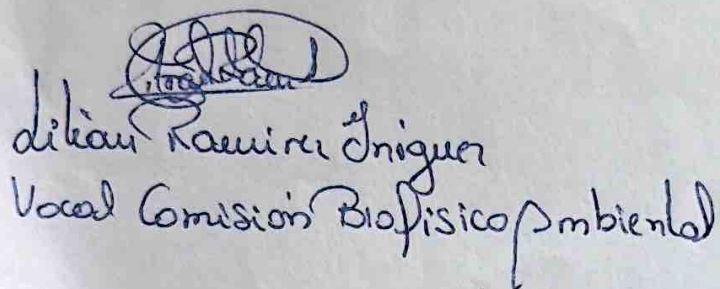 Lilian Ramirez Iniguez
Vocal Comisión Biofisico Ambiental